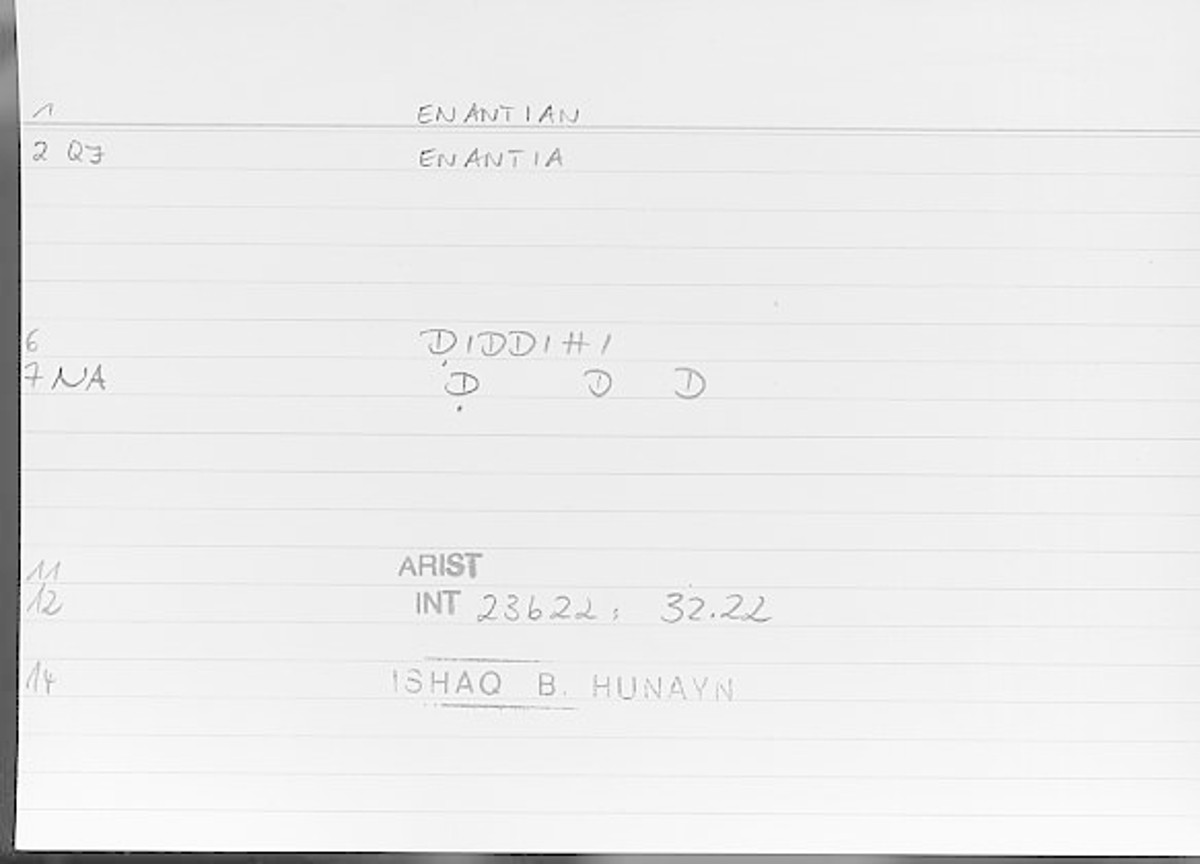 1 ENANTIAN
2 QJ ENANTIA
6 ḌIDDIHI
7 NA Ḍ D D
11 ARIST
12 INT 23b22; 32.22
14 ISHAQ B. HUNAYN